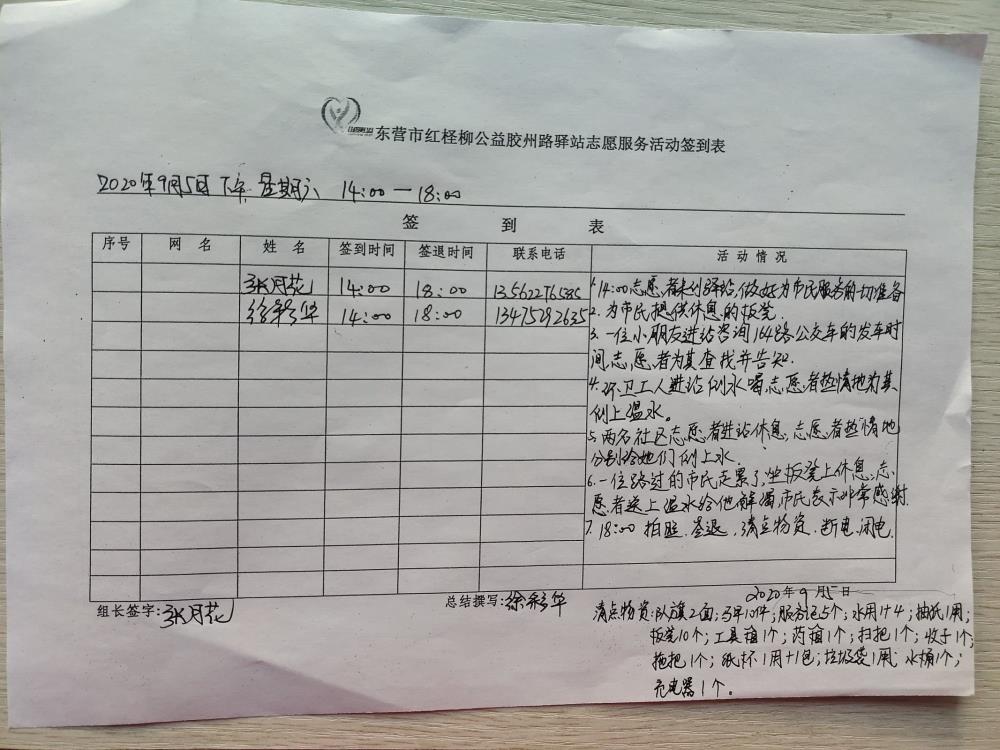 东营市红柽柳公益胶州路驿站志愿服务活动签到表
2020年9月5日 下午 星期六 14:00—18:00
签 到 表
序号 网 名 姓 名 签到时间 签退时间 联系电话 活 动 情 况
张月花 14:00 18:00 13562276585
徐彩华 14:00 18:00 13475292635
1.14:00志愿者来到驿站,做好为市民服务的一切准备
2.为市民提供休息的板凳.
3.一位小朋友进站咨询164路公交车的发车时
间,志愿者为其查找并告知.
4.环卫工人进站倒水喝,志愿者热情地为其
倒上温水。
5.两名社区志愿者进站休息,志愿者热情地
分别给她们倒上水.
6.一位路过的市民走累了,坐板凳上休息,志
愿者送上温水给他解渴,市民表示非常感谢.
7.18:00 拍照.签退,清点物资.断电.闭电.
组长签字:张月花 总结撰写:徐彩华
2020年9月5日
清点物资:队旗2面;马甲10件;服务包5个;水用1+4;抽纸1用;
板凳10个;工具箱1个;药箱1个;扫把1个;收子1个;
拖把1个;纸杯1用+1包;垃圾袋1用;水桶1个;
充电器1个。